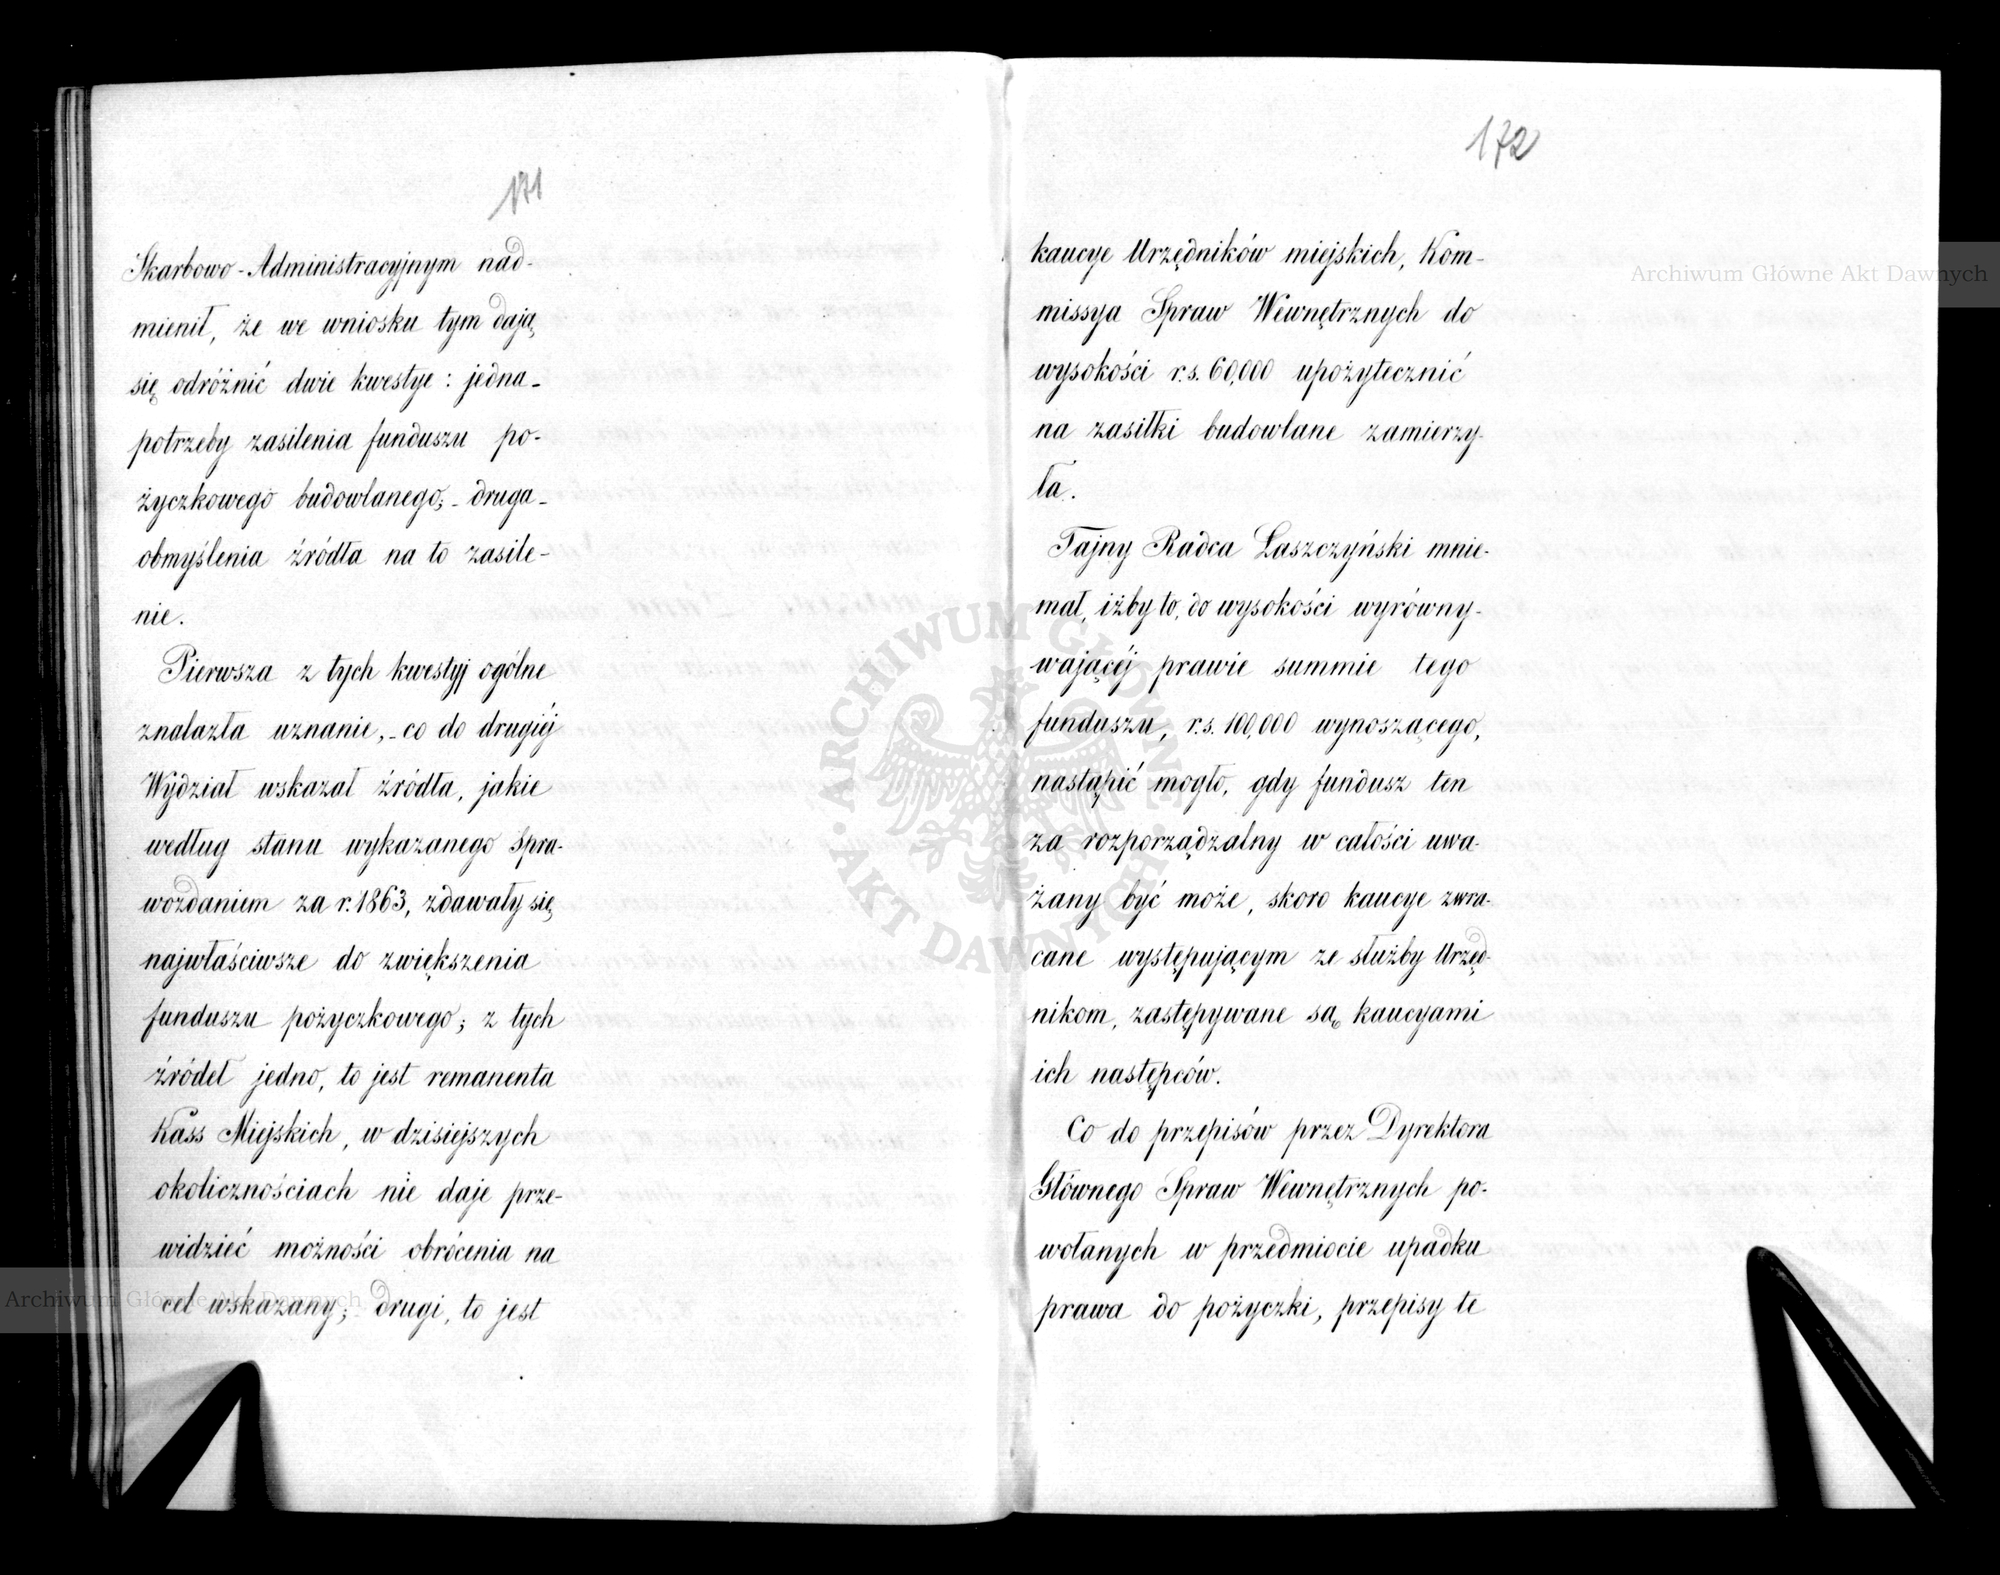 171
Skarbowo-Administracyjnym nad-
mienił, że we wniosku tym dają
się odróżnić dwie kwestye: jedna-
potrzeby zasilenia funduszu po-
życzkowego budowlanego; - druga-
obmyślenia źródła na to zasile-
nie.
Pierwsza z tych kwestyj ogólne
znalazła uznanie, - co do drugiéj
Wydział wskazał źródła, jakie
według stanu wykazanego Spra-
wozdaniem za r. 1863, zdawały się
najwłaściwsze do zwiększenia
funduszu pożyczkowego; z tych
źródeł jedno, to jest remanenta
Kass Miejskich, w dzisiejszych
okolicznościach nie daje prze-
widzieć możności obrócenia na
cel wskazany; drugi, to jest
172
kaucye Urzędników miejskich, Kom-
missya Spraw Wewnętrznych do
wysokości r.s. 60,000 upożytecznić
na zasiłki budowlane zamierzy-
ła.
Tajny Radca Łaszczyński mnie-
mał, iżby to, do wysokości wyrówny-
wającéj prawie summie tego
funduszu, r.s. 100,000 wynoszącego,
nastąpić mogło, gdy fundusz ten
za rozporządzalny w całości uwa-
żany być może, skoro kaucye zwra-
cane występującym ze służby Urzęd-
nikom, zastępywane są kaucyami
ich następców.
Co do przepisów przez Dyrektora
Głównego Spraw Wewnętrznych po-
wołanych w przedmiocie upadku
prawa do pożyczki, przepisy te
Archiwum Główne Akt Dawnych
Archiwum Główne Akt Dawnych
ARCHIWUM GŁÓWNE
AKT DAWNYCH